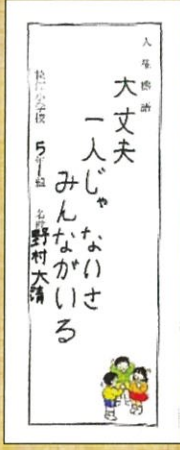 人権標語
大丈夫
一人じゃないさ
みんながいる
小学校 5年1組 名前 野村大清